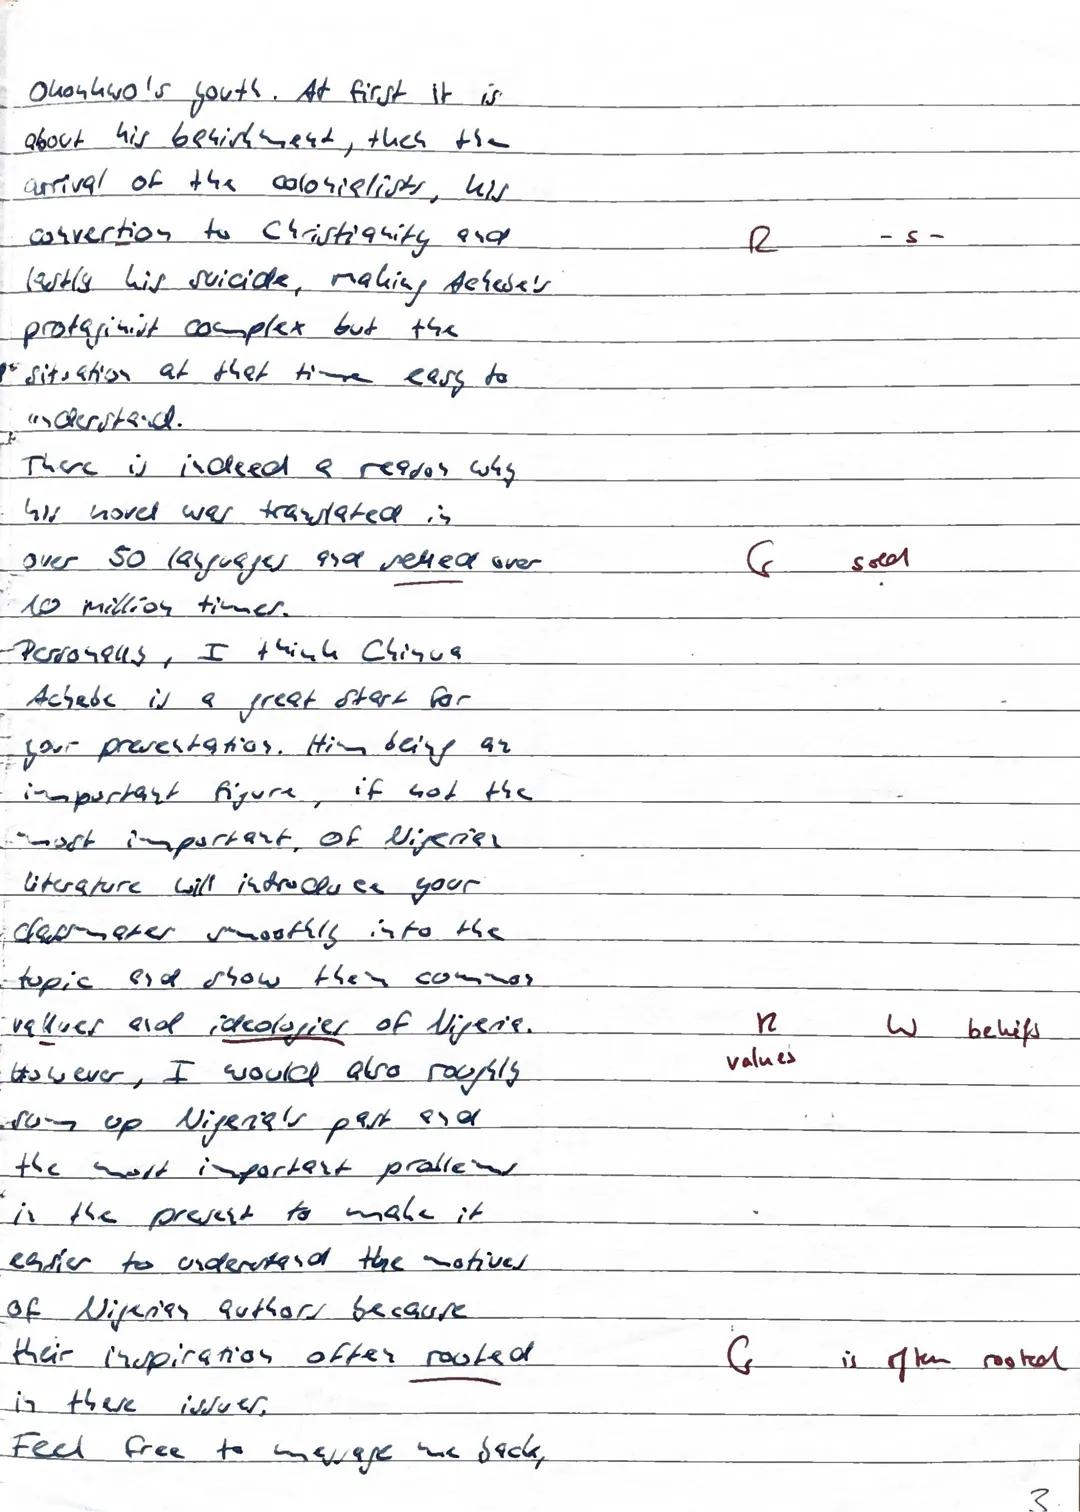 Okonkwo's youth. At first it is
about his banishment, then the
arrival of the colonialists, his
convertion to Christianity and
R -s-
lastly his suicide, making Achebe's
protaginist complex but the
situation at that time easy to
understand.
There is indeed a reason why
his novel was translated in
over 50 languages and selled over
G sold
10 million times.
Personally, I think Chinua
Achebe is a great start for
your presentation. Him being an
important figure, if not the
most important, of Nigerian
literature will introduce your
classmates smoothly into the
topic and show them common
vallues and ideologies of Nigeria.
R W beliefs
values
However, I would also roughly
sum up Nigeria's past and
the most important problems
in the present to make it
easier to understand the motives
of Nigerian authors because
their inspiration often rooted
G is often rooted
in these issues.
Feel free to message me back,
3